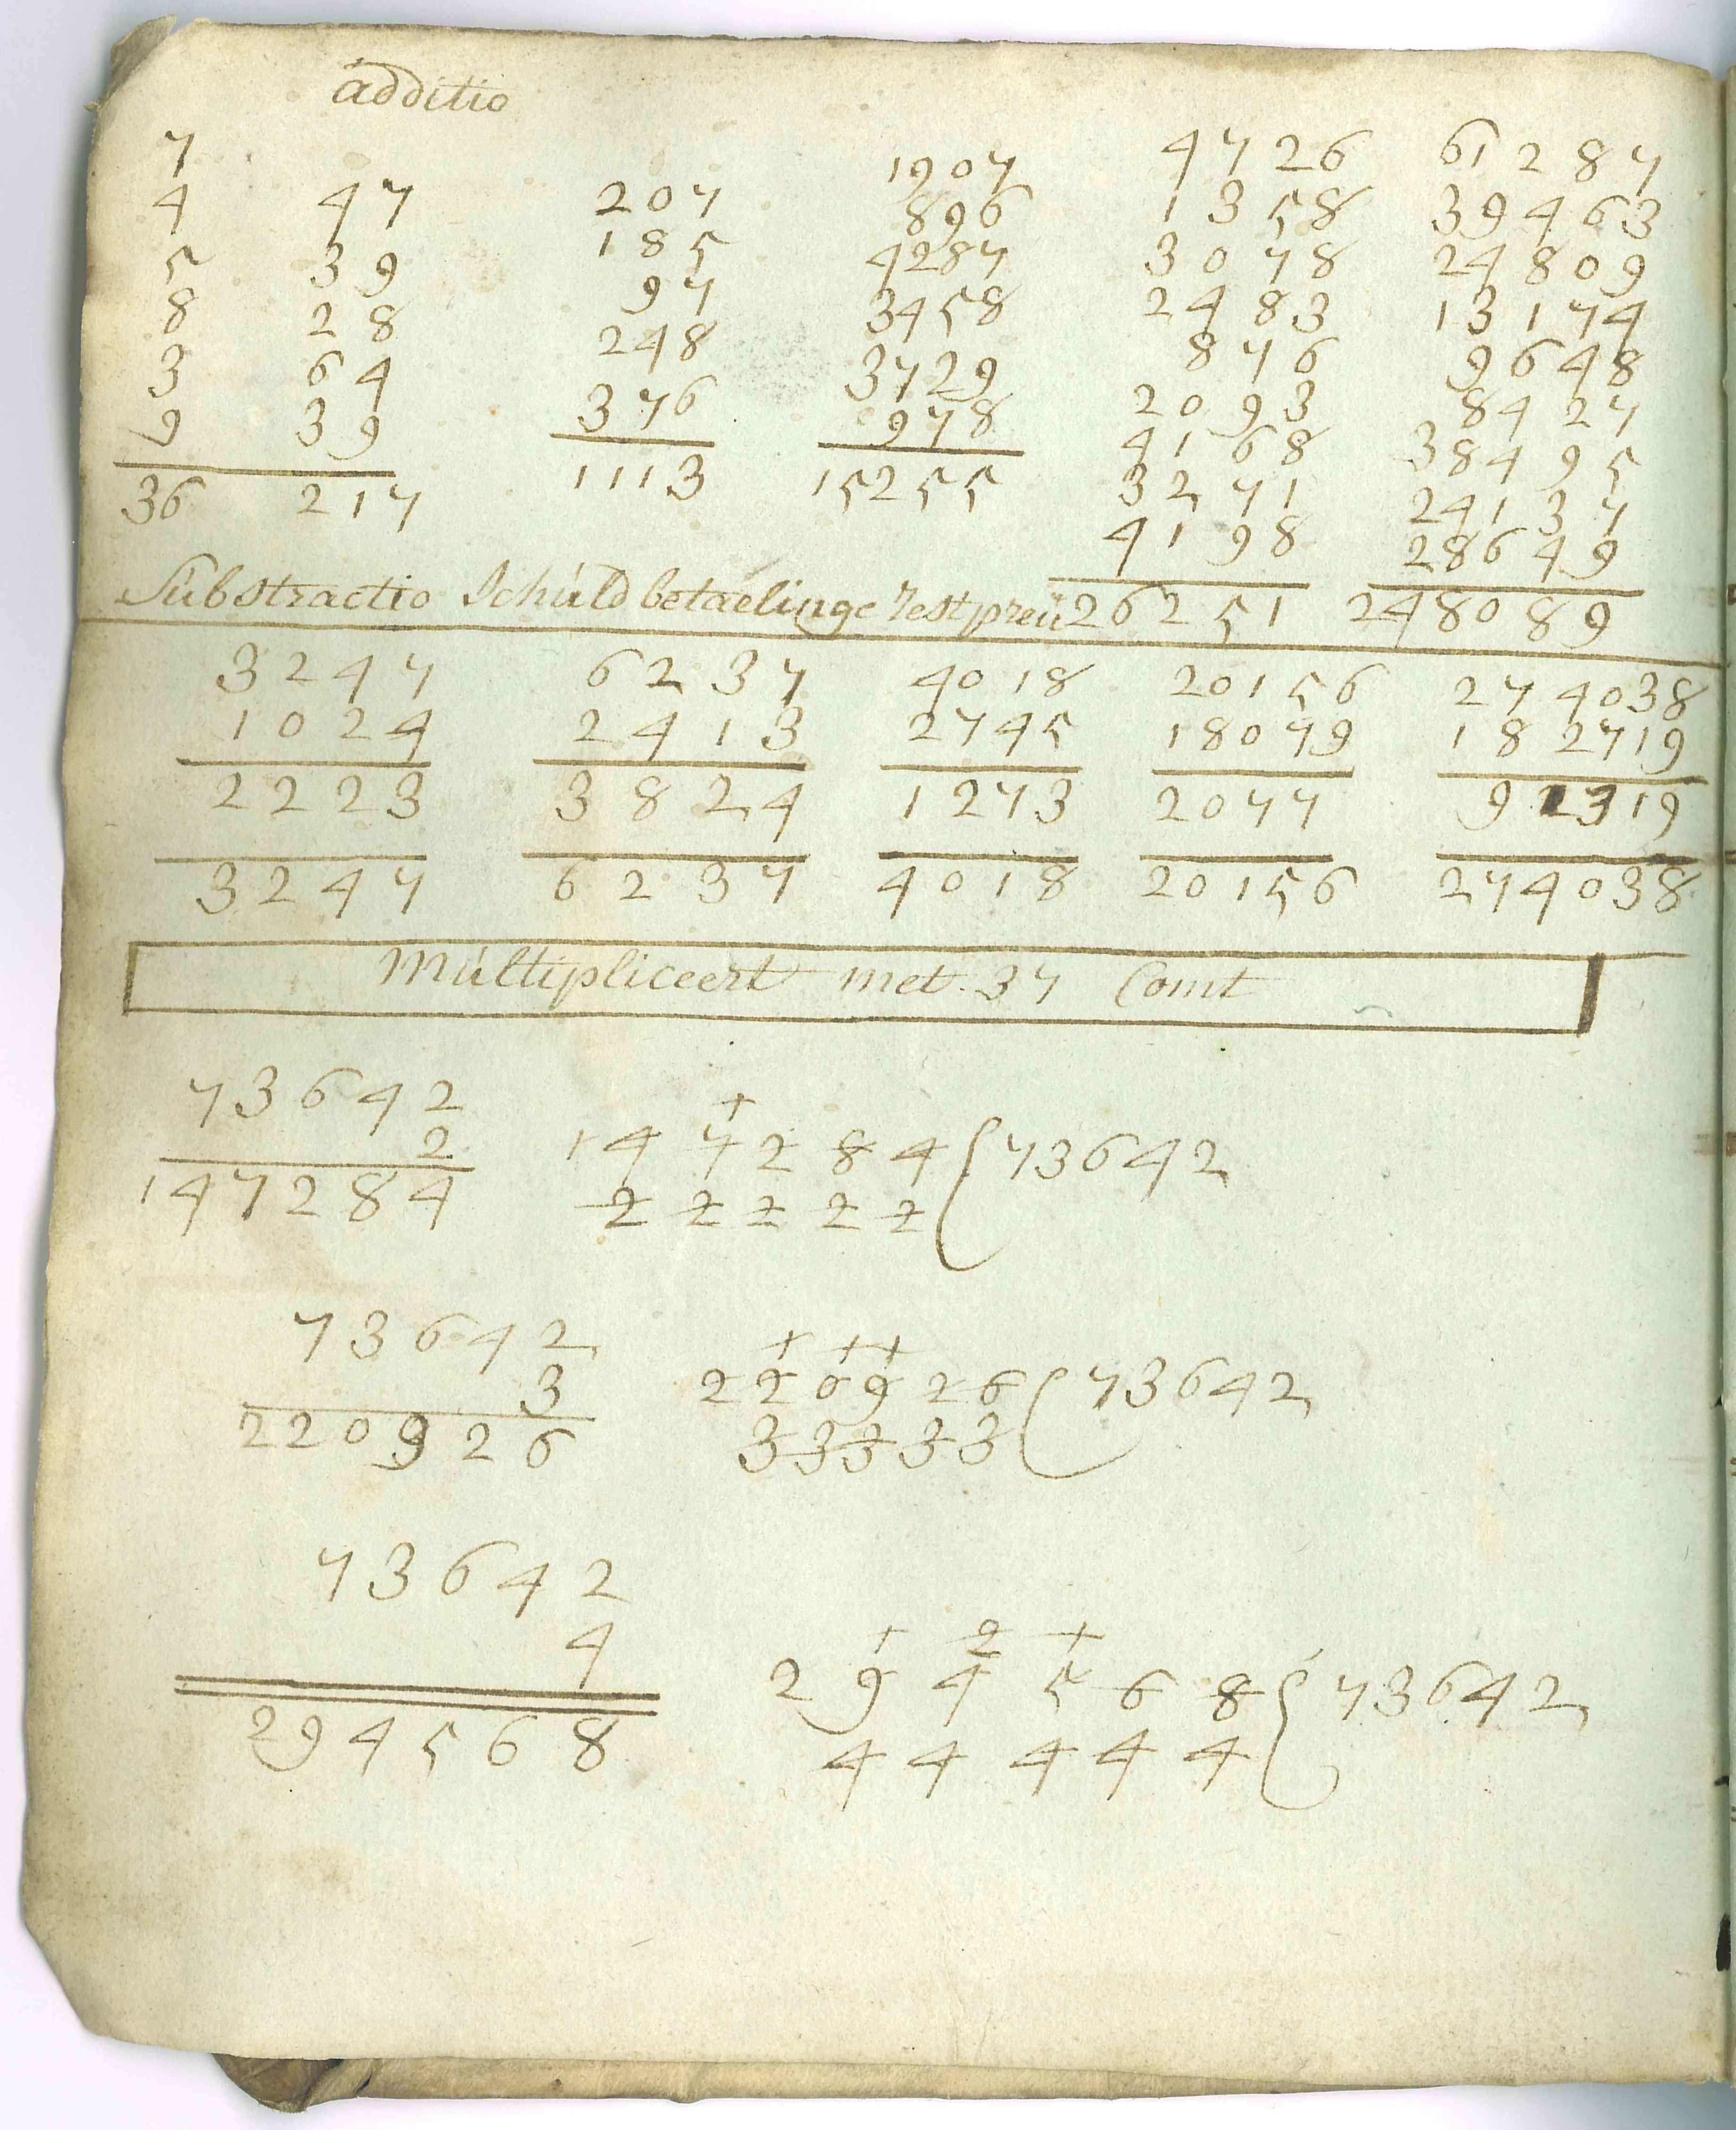 additio
7 1907 4726 61287
4 47 207 896 1358 39463
5 39 185 4287 3078 24809
8 28 97 3458 2483 13174
3 64 248 3729 876 9648
9 39 376 978 2093 8427
36 217 1113 15255 4168 38495
3271 24137
4198 28649
Substractio Schuld betaelinge rest preu 26251 248089
3247 6237 4018 20156 274038
1024 2413 2745 18079 182719
2223 3824 1273 2077 91319
3247 6237 4018 20156 274038
Multipliceert met. 37 Comt
73642
2
147284
1
147284 ( 73642
22222
73642
3
220926
1 1 1
220926 ( 73642
33333
73642
4
294568
1 2 1
294568 ( 73642
44444